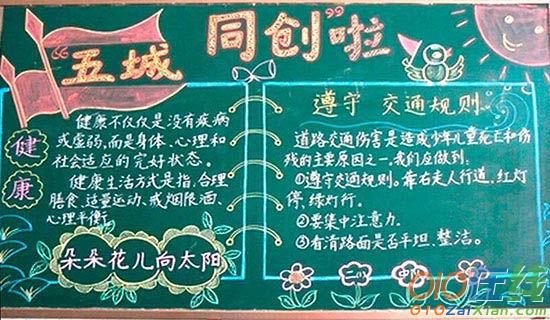 “五城同创”啦
健康
健康不仅仅是没有疾病
或虚弱,而是身体、心理和
社会适应的完好状态。
健康生活方式是指,合理
膳食、适量运动、戒烟限酒、
心理平衡。
朵朵花儿向太阳
遵守 交通规则。
道路交通伤害是造成少年儿童死亡和伤
残的主要原因之一,我们应做到:
①遵守交通规则。靠右走人行道,红灯
停,绿灯行。
②要集中注意力.
③看清路面是否平坦、整洁。
二(1)中队
010在线
010zaixian.com